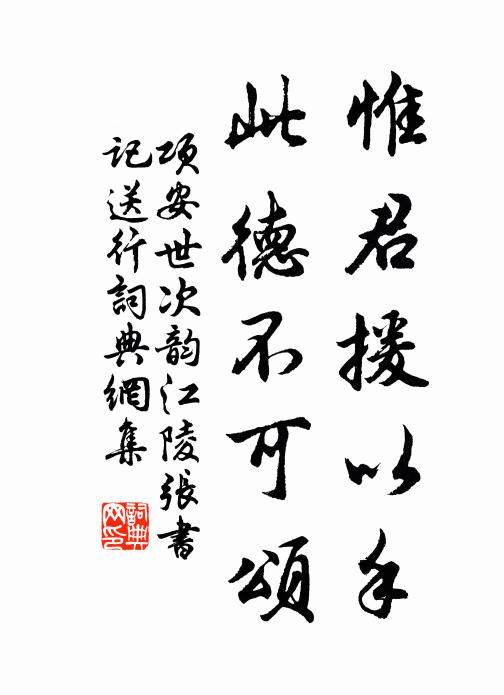 惟君援以手
此德不可頌
項安世次韵江陵張書
記送行詞典網集
詞典网印